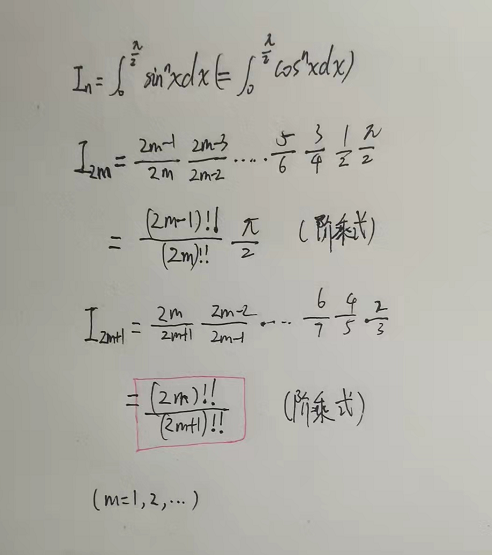 Iₙ = ∫₀^(π/2) sinⁿxdx (= ∫₀^(π/2) cosⁿxdx)
I₂ₘ = (2m-1)/(2m) (2m-3)/(2m-2) ····· 5/6 3/4 1/2 π/2
= (2m-1)!!/(2m)!! π/2 (阶乘式)
I₂ₘ₊₁ = 2m/(2m+1) (2m-2)/(2m-1) ····· 6/7 4/5 · 2/3
= (2m)!!/(2m+1)!! (阶乘式)
(m=1,2,···)